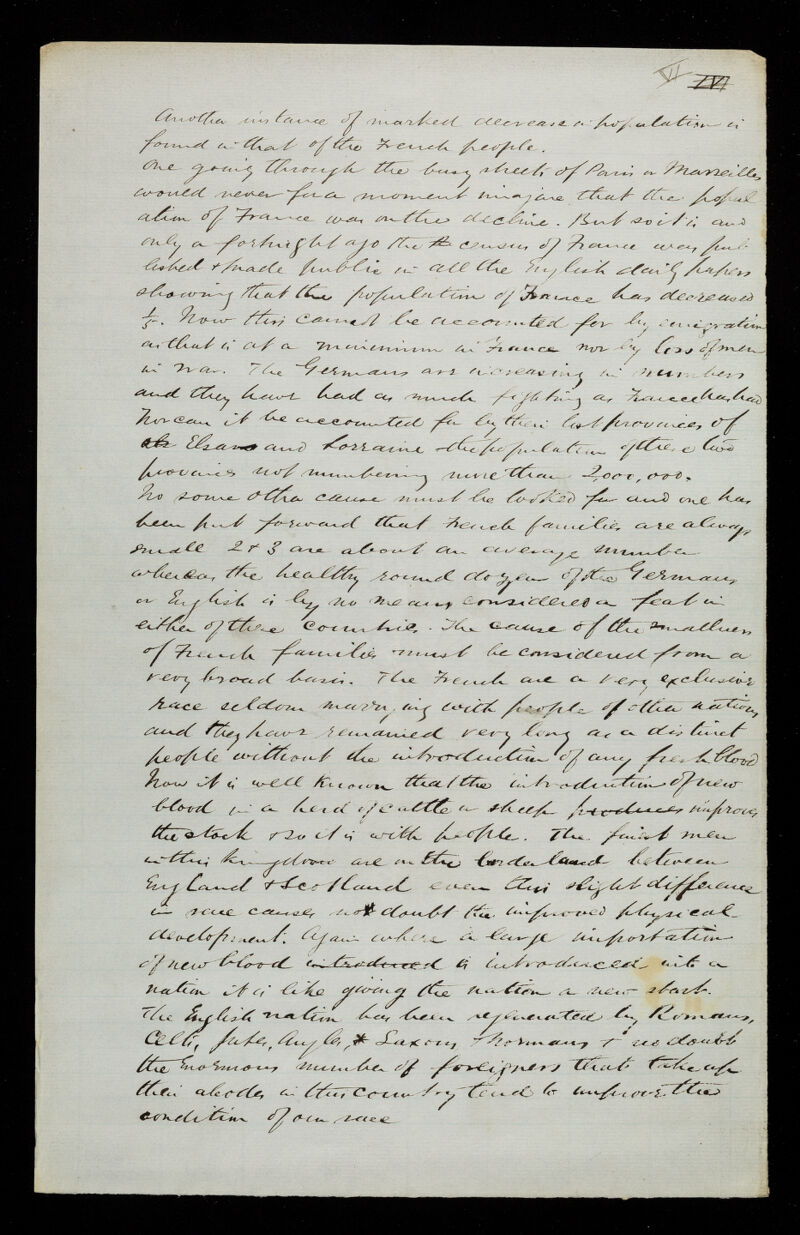 VI IVI
Another instance of marked decrease in population is
found in that of the French people.
One going through the busy streets of Paris or Marseilles
would never for a moment imagine that the popul
ation of France was on the decline. But so it is and
only a fortnight ago the census of France was pub
lished & made public in all the English daily papers
showing that the population of France has decreased
1/5. Now this cannot be accounted for by emigration
as that is at a minimum in France nor by loss of men
in war. The Germans are increasing in numbers
and they have had as much fighting as France has had
Nor can it be accounted for by their lost provinces of
Elsass and Lorraine the population of these two
provinces not numbering more than 2,000,000.
No some other cause must be looked for and one has
been put forward that French families are always
small 2 & 3 are about an average number
whereas the healthy round dozen of the Germans
or English is by no means considered a feat in
either of these countries. The cause of the smallness
of French families must be considered from a
very broad basis. The French are a very exclusive
race seldom marrying with people of other nations
and they have remained very long as a distinct
people without the introduction of any fresh blood
Now it is well known that the introduction of new
blood in a herd of cattle or sheep produces improves
the stock & so it is with people. The finest men
in this kingdom are on the borderland between
England & Scotland even this slight difference
in race causes no doubt the improved physical
development. Again where a large importation
of new blood introduced is introduced into a
nation it is like giving the nation a new start.
The English nation has been regenerated by Romans,
Celts, Jutes, Angles, Saxons, & Normans & no doubt
the Enormous number of foreigners that take up
their abodes in this country tend to improve the
condition of our race